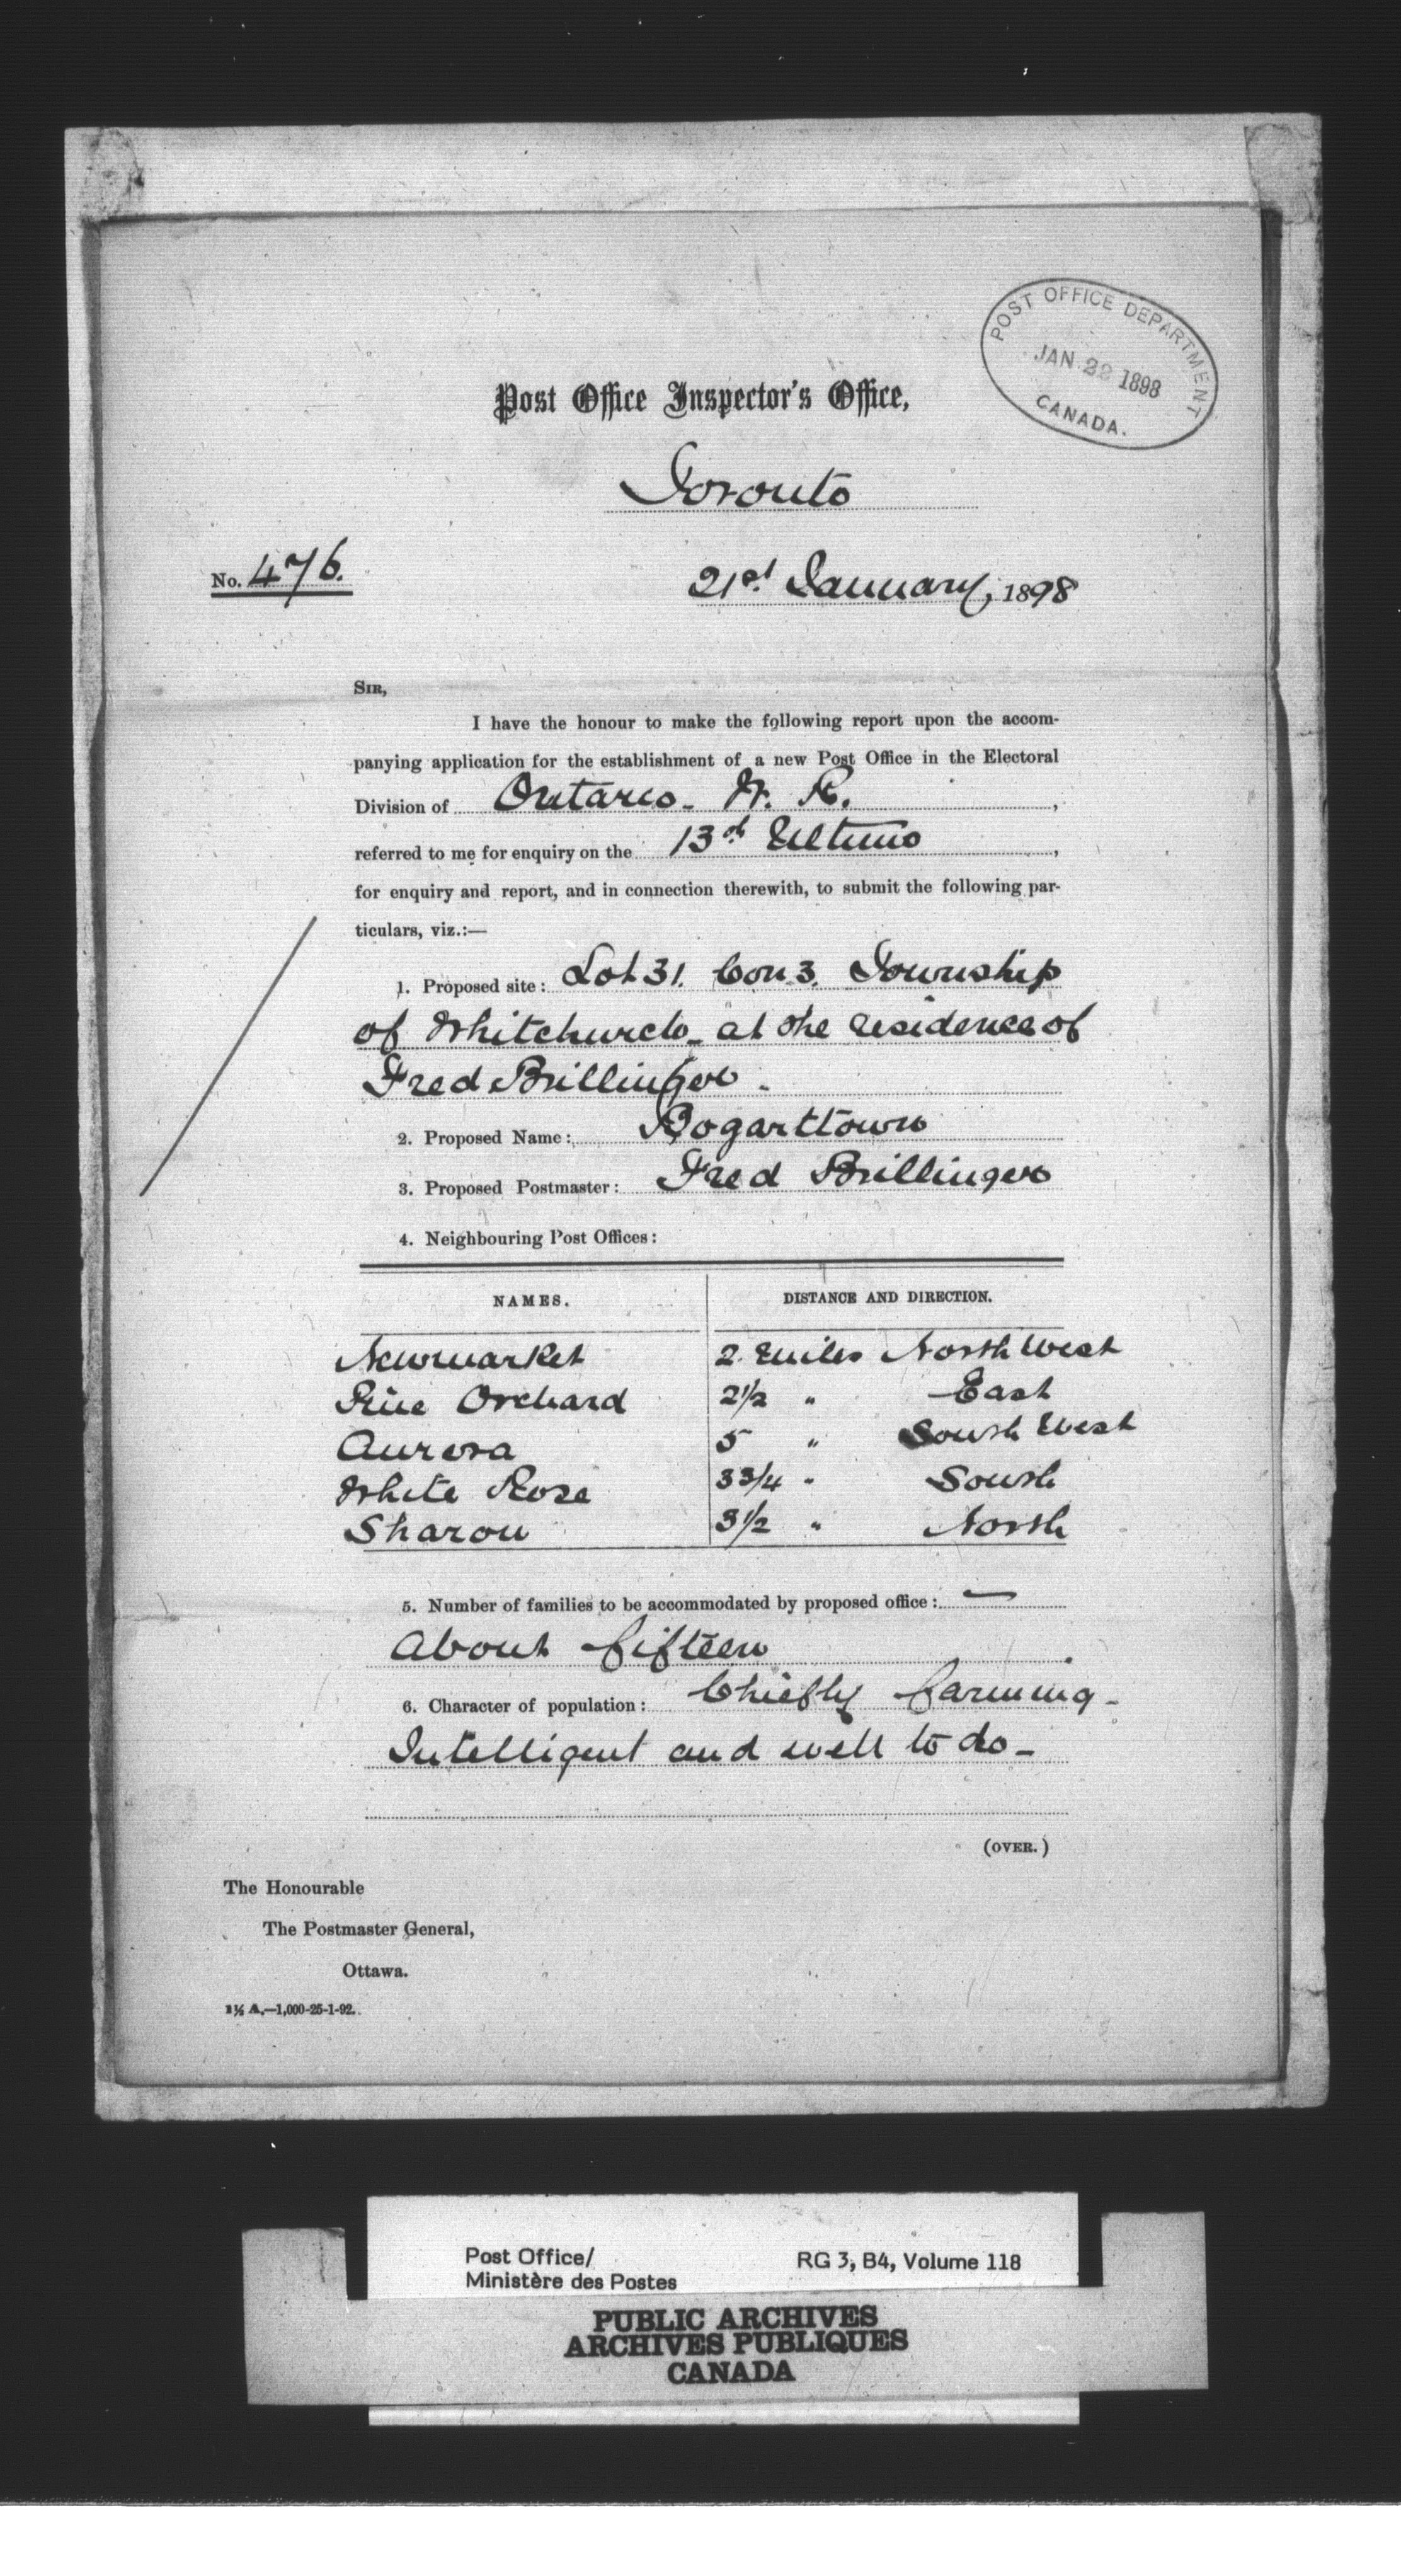 POST OFFICE DEPARTMENT
JAN 22 1898
CANADA.
Post Office Inspector's Office,
Toronto
No. 476.
21st January, 1898
SIR,
I have the honour to make the following report upon the accom-
panying application for the establishment of a new Post Office in the Electoral
Division of Ontario - W. R.,
referred to me for enquiry on the 13th Ultimo,
for enquiry and report, and in connection therewith, to submit the following par-
ticulars, viz.:—
1. Proposed site: Lot 31. Con. 3. Township
of Whitchurch - at the residence of
Fred Brillinger -
2. Proposed Name: Bogarttown
3. Proposed Postmaster: Fred Brillinger
4. Neighbouring Post Offices:
NAMES. DISTANCE AND DIRECTION.
Newmarket 2 miles North West
Pine Orchard 2 1/2 " East
Aurora 5 " South West
White Rose 3 3/4 " South
Sharon 3 1/2 " North
5. Number of families to be accommodated by proposed office: —
About fifteen
6. Character of population: Chiefly farming -
Intelligent and well to do -
(OVER.)
The Honourable
The Postmaster General,
Ottawa.
1½ A.—1,000-25-1-92.
Post Office/
Ministère des Postes
RG 3, B4, Volume 118
PUBLIC ARCHIVES
ARCHIVES PUBLIQUES
CANADA